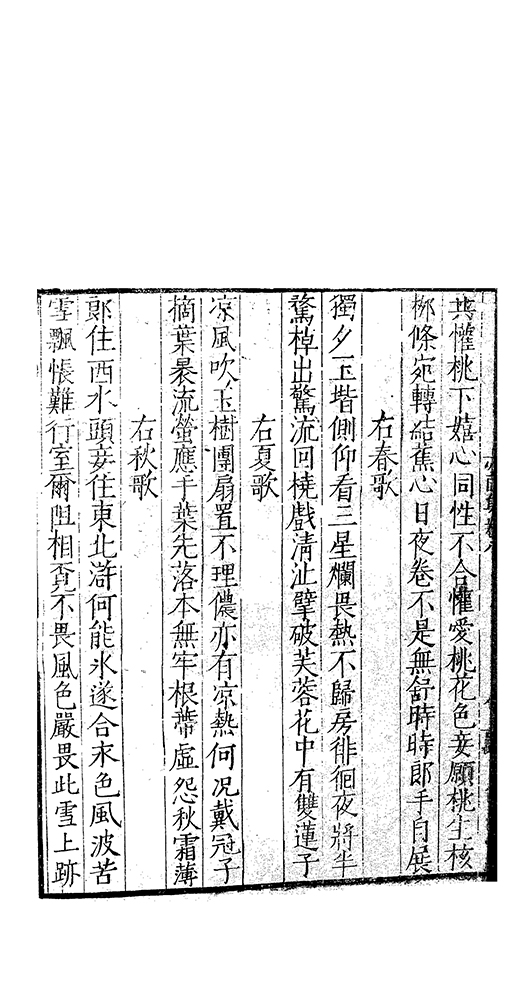 共懽桃下嬉心同性不合懽愛桃花色妾願桃生核
柳條宛轉結蕉心日夜卷不是無舒時時郎手自展
右春歌
獨夕玉堦側仰看三星爛畏熱不歸房徘徊夜將半
驚棹出驚流回橈戲清沚擘破芙蓉花中有雙蓮子
右夏歌
凉風吹玉樹團扇置不理儂亦有凉熱何况戴冠子
摘葉暴流螢應手葉先落本無牢根蔕虛怨秋霜薄
右秋歌
郎住西水頭妾住東北滸何能氷遂合末色風波苦
雪飄悵難行室爾阻相覔不畏風色嚴畏此雪上跡